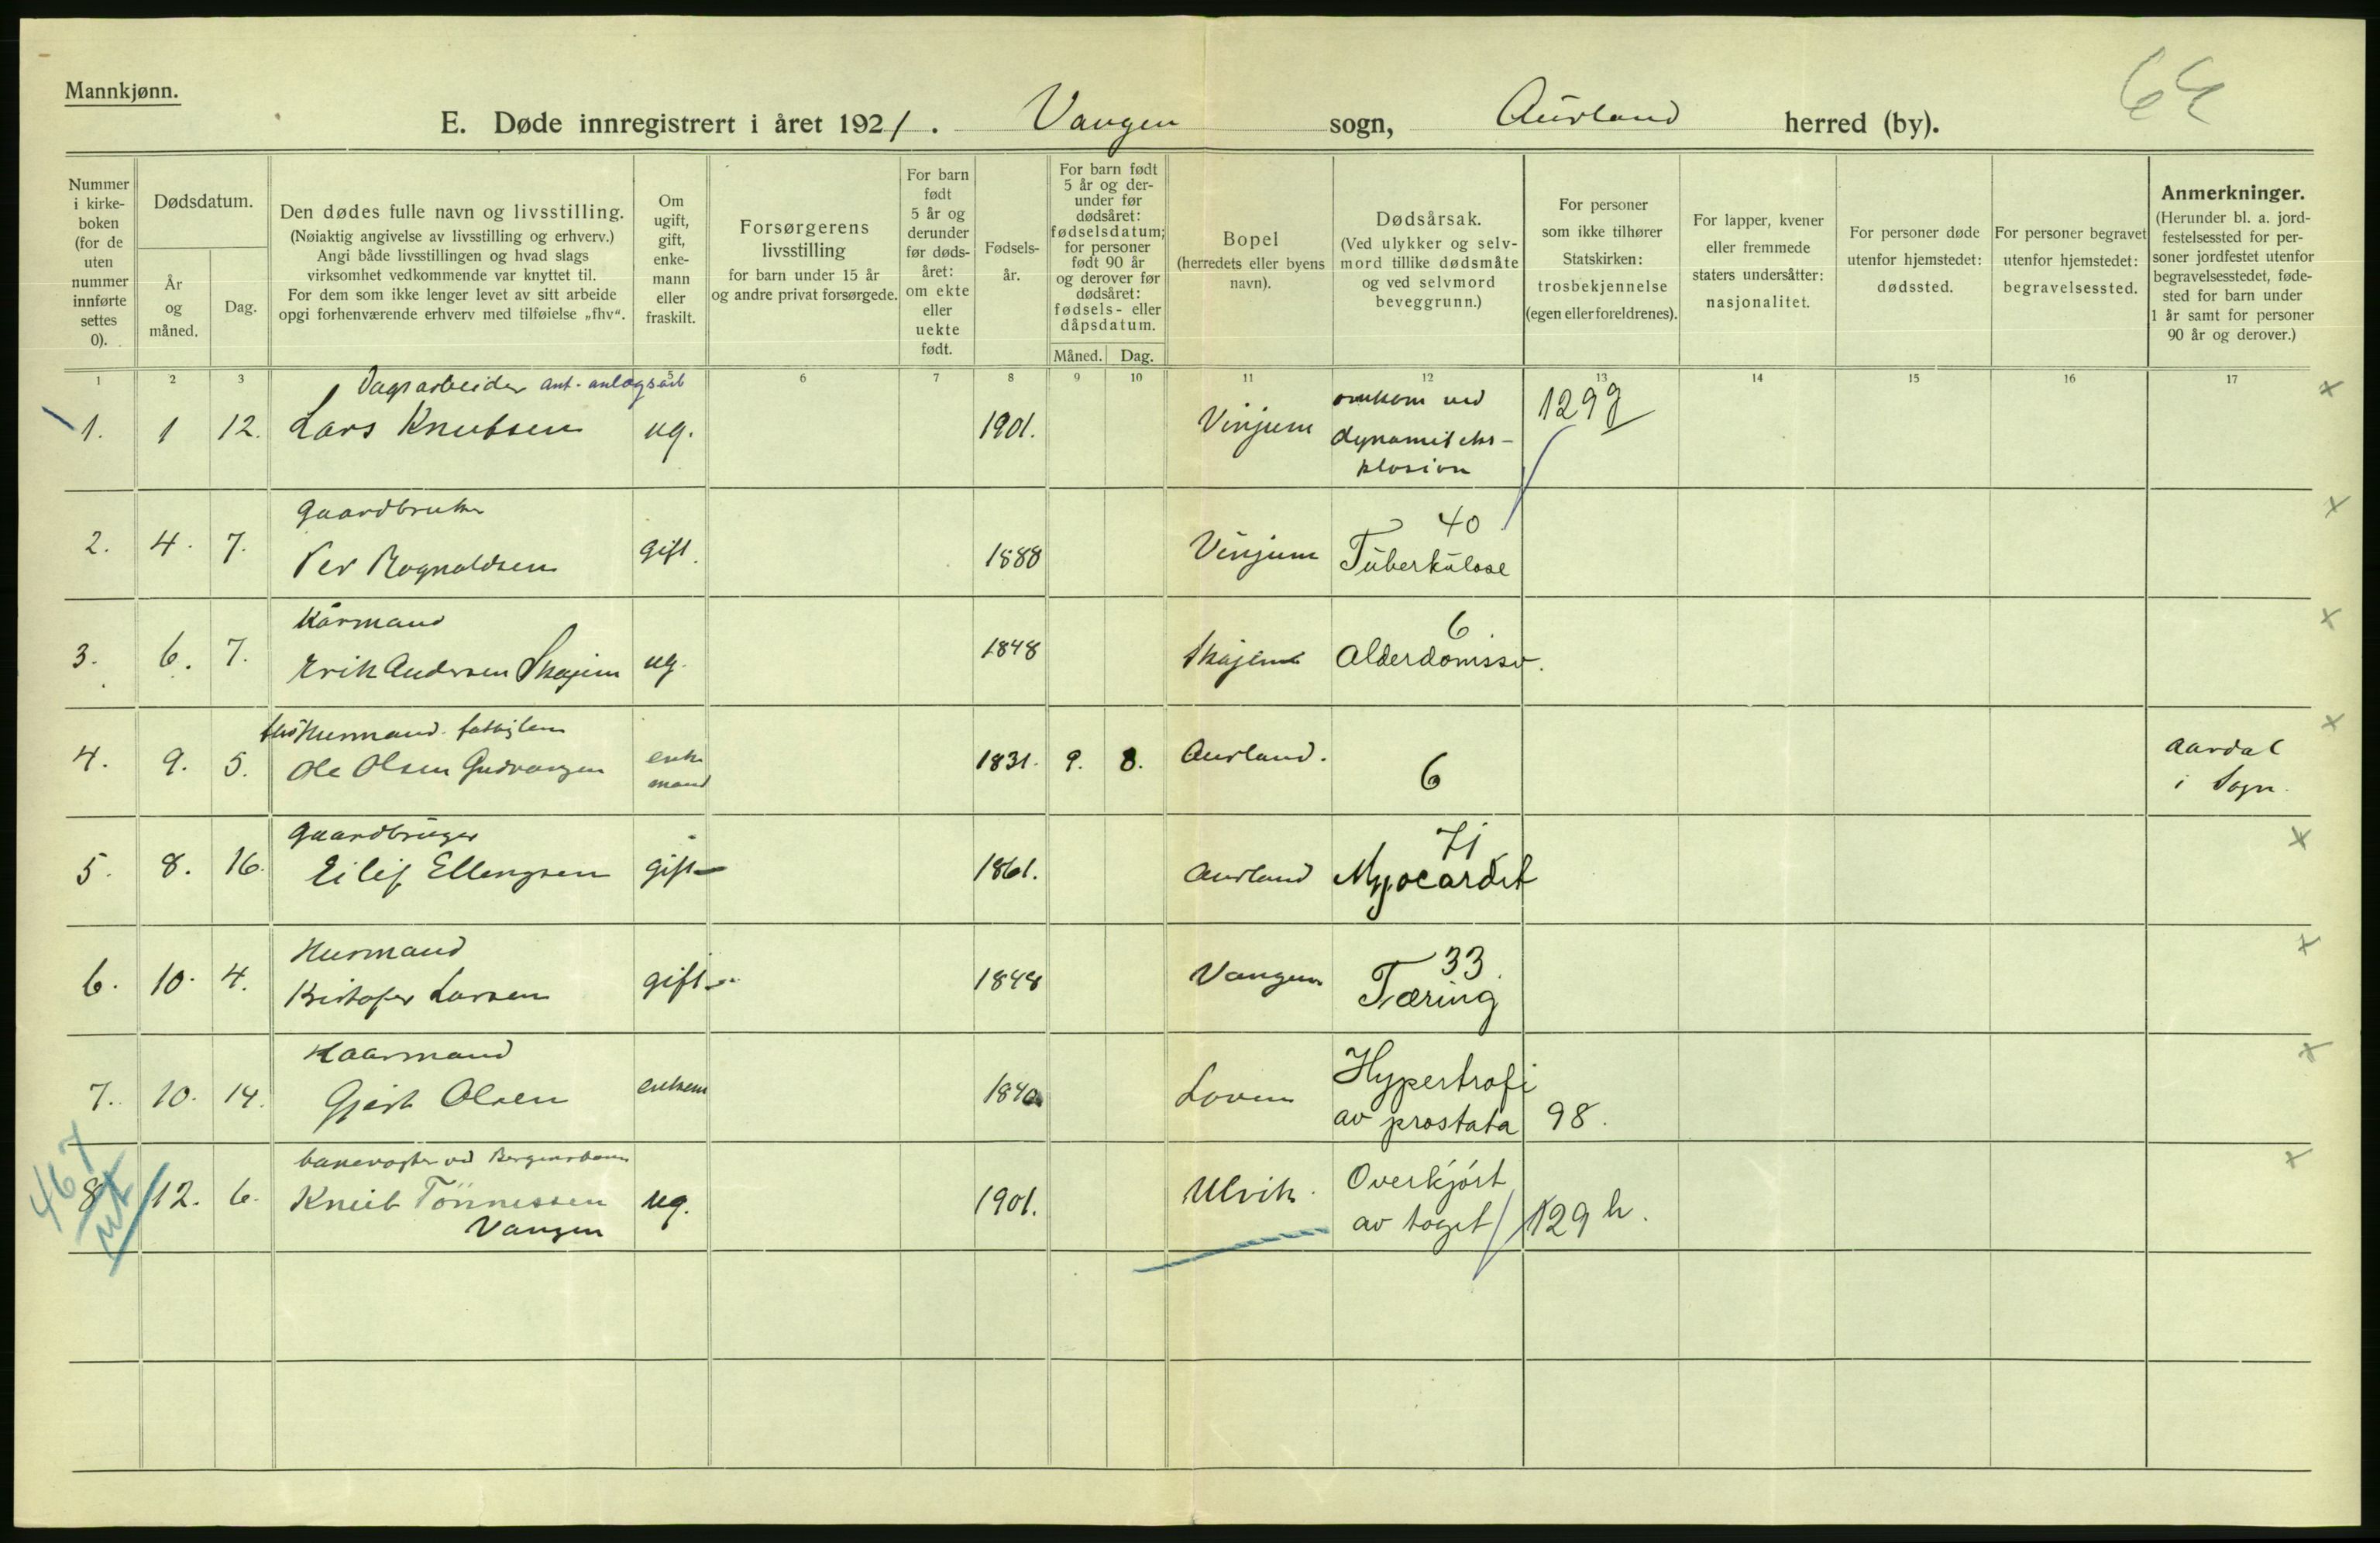 Mannkjønn.
64
E. Døde innregistrert i året 1921. Vangen sogn, Aurland herred (by).
Nummer i kirkeboken (for de uten nummer innførte settes 0).
Dødsdatum.
År og måned.
Dag.
Den dødes fulle navn og livsstilling.
(Nøiaktig angivelse av livsstilling og erhverv.)
Angi både livsstillingen og hvad slags
virksomhet vedkommende var knyttet til.
For dem som ikke lenger levet av sitt arbeide
opgi forhenværende erhverv med tilføielse „fhv“.
Om ugift, gift, enkemann eller fraskilt.
Forsørgerens livsstilling
for barn under 15 år
og andre privat forsørgede.
For barn født 5 år og derunder før dødsåret: om ekte eller uekte født.
Fødselsår.
For barn født 5 år og derunder før dødsåret: fødselsdatum; for personer født 90 år og derover før dødsåret: fødsels- eller dåpsdatum.
Måned. Dag.
Bopel
(herredets eller byens navn).
Dødsårsak.
(Ved ulykker og selvmord tillike dødsmåte og ved selvmord beveggrunn.)
For personer som ikke tilhører Statskirken: trosbekjennelse (egen eller foreldrenes).
For lapper, kvener eller fremmede staters undersåtter: nasjonalitet.
For personer døde utenfor hjemstedet: dødssted.
For personer begravet utenfor hjemstedet: begravelsessted.
Anmerkninger.
(Herunder bl. a. jordfestelsessted for personer jordfestet utenfor begravelsesstedet, fødested for barn under 1 år samt for personer 90 år og derover.)
1 2 3 5 6 7 8 9 10 11 12 13 14 15 16 17
Dagsarbeider ant. anlægsarb
1. 1 12. Lars Knutsen ug. 1901. Vinjum omkom ved dynamiteksplosion 129g x
Gaardbruker
2. 4. 7. Per Ragnaldsen gift. 1888 Vinjum 40 Tuberkulose x
Kårmand
3. 6. 7. Erik Andersen Skajem ug. 1848 Skajem 6 Alderdomssv. x
Husmand
4. 9. 5. Ole Olsen Gudvangen enkemand 1831. 9. 8. Aurland. 6 Aardal i Sogn. x
Gaardbruger
5. 8. 16. Eilif Ellengsen gift 1861. Aurland 71 Myocardit x
Husmand
6. 10. 4. Kristofer Larsen gift 1848 Vangen 33. Tæring x
Kaarmand
7. 10. 14. Gjert Olsen enkem 1840 Loven Hypertrofi av prostata 98. x
467
banevogter ved Bergensbanen
8 12. 6. Knut Tönnessen Vangen ug. 1901. Ulvik. Overkjórt av toget 129 h. x